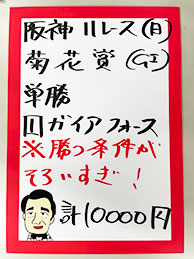 阪神11レース(日)
菊花賞(GI)
単勝
1ガイアフォース
※勝つ条件が
そろいすぎ!
計10000円